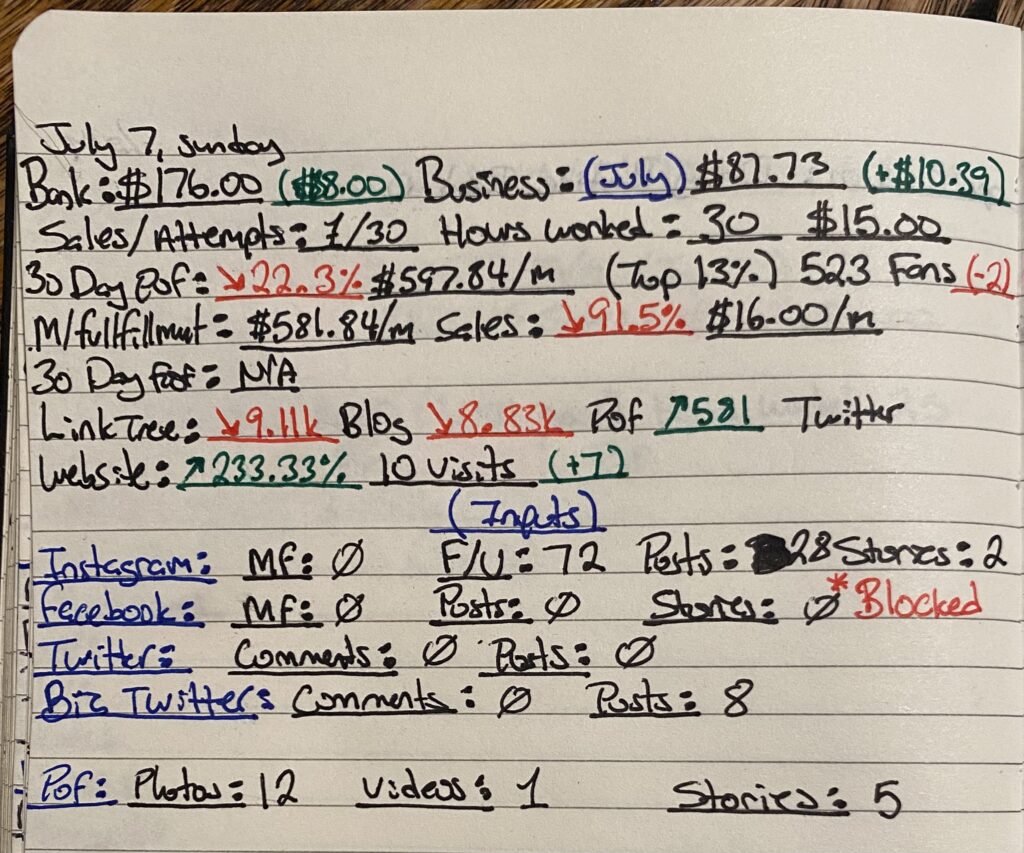 July 7, sunday
Bank: $176.00 ($8.00) Business: (July) $87.73 (+$10.39)
Sales/Attempts: 1/30 Hours worked: 30 $15.00
30 Day Pof: ↘22.3% $597.84/m (Top 13%) 523 Fans (-2)
M/fullfillmut: $581.84/m Sales: ↘91.5% $16.00/m
30 Day fof: N/A
LinkTree: ↘9.11k Blog ↘8.83k Pof ↗581 Twitter
Website: ↗233.33% 10 Visits (+7)
(Inputs)
Instagram: Mf: Ø F/U: 72 Posts: 28 Stories: 2
Facebook: Mf: Ø Posts: Ø Stories: Ø *Blocked
Twitter: Comments: Ø Posts: Ø
Biz Twitter: Comments: Ø Posts: 8
Pof: Photos: 12 Videos: 1 Stories: 5